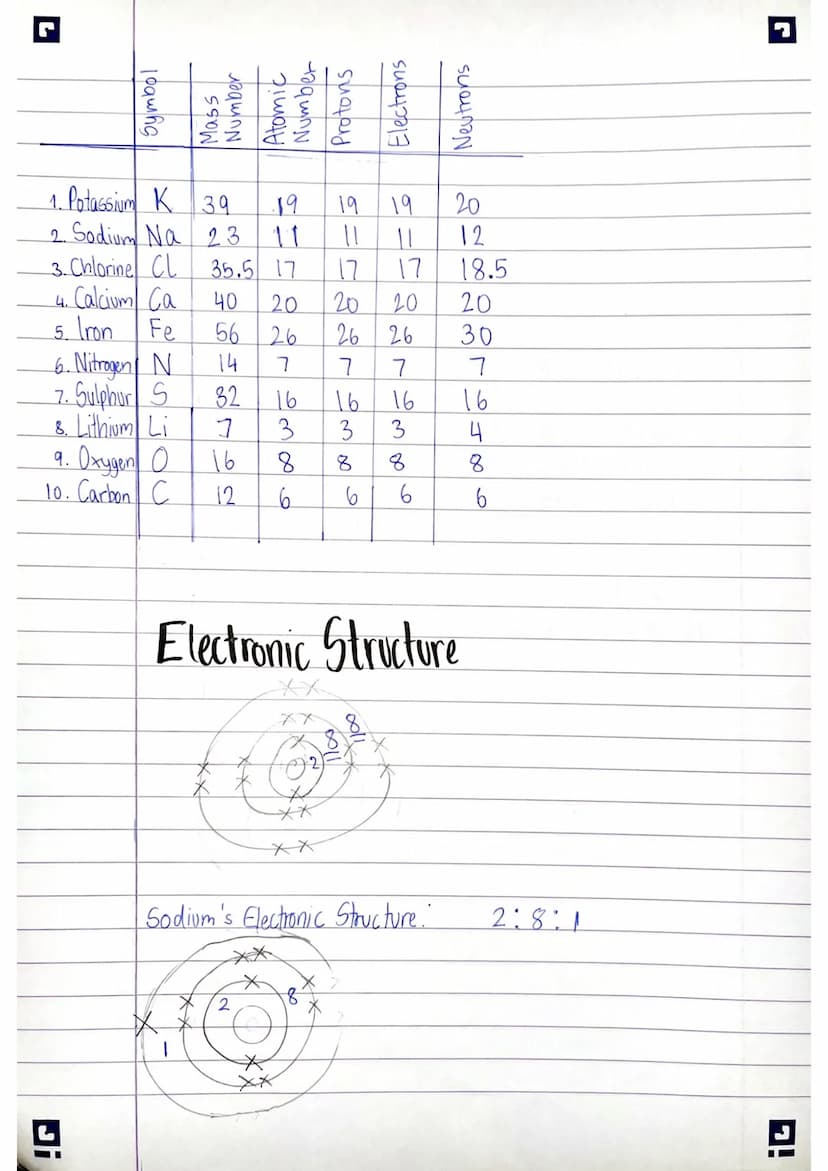 Symbol Mass Number Atomic Number Protons Electrons Neutrons
1. Potassium K 39 19 19 19 20
2. Sodium Na 23 11 11 11 12
3. Chlorine Cl 35.5 17 17 17 18.5
4. Calcium Ca 40 20 20 20 20
5. Iron Fe 56 26 26 26 30
6. Nitrogen N 14 7 7 7 7
7. Sulphur S 32 16 16 16 16
8. Lithium Li 7 3 3 3 4
9. Oxygen O 16 8 8 8 8
10. Carbon C 12 6 6 6 6
Electronic Structure
2 8 8
Sodium's Electronic Structure: 2:8:1
2 8
1